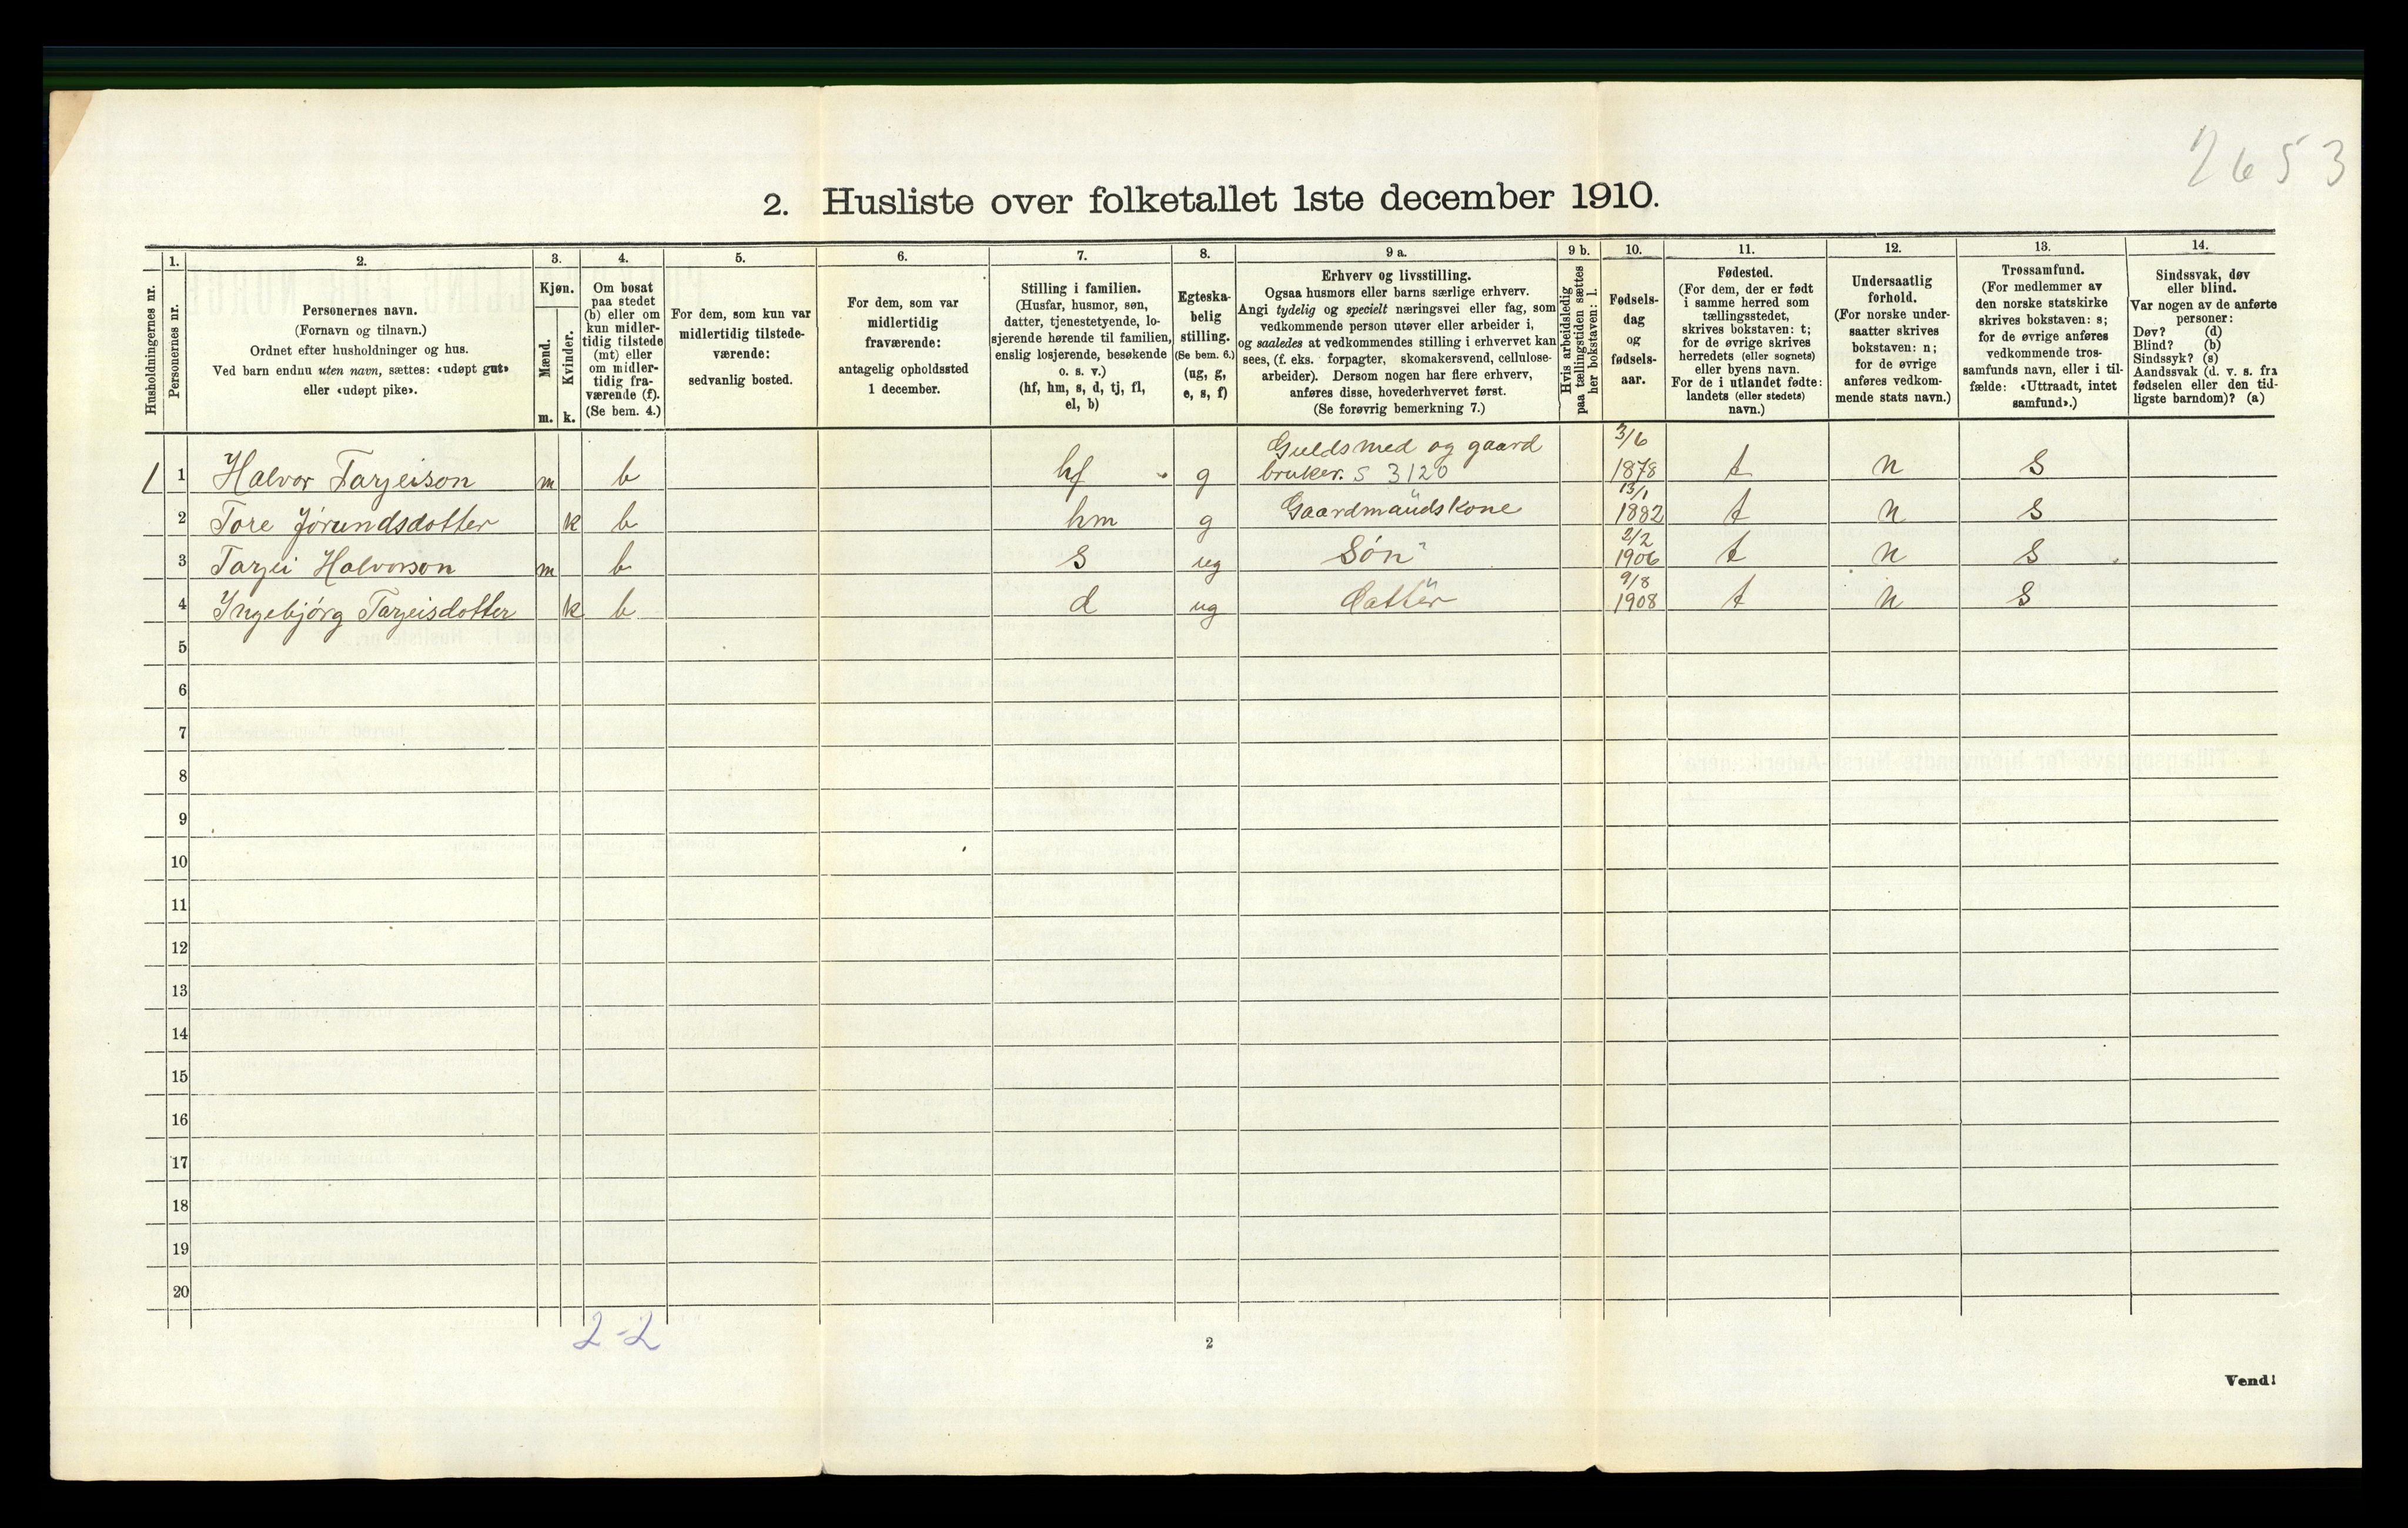 2653
2. Husliste over folketallet 1ste december 1910.
Husholdningernes nr.
1.
Personernes nr.
2.
Personernes navn.
(Fornavn og tilnavn.)
Ordnet efter husholdninger og hus.
Ved barn endnu uten navn, sættes: «udøpt gut»
eller «udøpt pike».
3.
Kjøn.
Mænd.
Kvinder.
m. k.
4.
Om bosat
paa stedet
(b) eller om
kun midler-
tidig tilstede
(mt) eller
om midler-
tidig fra-
værende (f).
(Se bem. 4.)
5.
For dem, som kun var
midlertidig tilstede-
værende:
sedvanlig bosted.
6.
For dem, som var
midlertidig
fraværende:
antagelig opholdssted
1 december.
7.
Stilling i familien.
(Husfar, husmor, søn,
datter, tjenestetyende, lo-
sjerende hørende til familien,
enslig losjerende, besøkende
o. s. v.)
(hf, hm, s, d, tj, fl,
el, b)
8.
Egteska-
belig
stilling.
(Se bem. 6.)
(ug, g,
e, s, f)
9 a.
Erhverv og livsstilling.
Ogsaa husmors eller barns særlige erhverv.
Angi tydelig og specielt næringsvei eller fag, som
vedkommende person utøver eller arbeider i,
og saaledes at vedkommendes stilling i erhvervet kan
sees, (f. eks. forpagter, skomakersvend, cellulose-
arbeider). Dersom nogen har flere erhverv,
anføres disse, hovederhvervet først.
(Se forøvrig bemerkning 7.)
9 b.
Hvis arbeidsledig
paa tællingstiden sættes
her bokstaven: l.
10.
Fødsels-
dag
og
fødsels-
aar.
11.
Fødested.
(For dem, der er født
i samme herred som
tællingsstedet,
skrives bokstaven: t;
for de øvrige skrives
herredets (eller sognets)
eller byens navn.
For de i utlandet fødte:
landets (eller stedets)
navn.)
12.
Undersaatlig
forhold.
(For norske under-
saatter skrives
bokstaven: n;
for de øvrige
anføres vedkom-
mende stats navn.)
13.
Trossamfund.
(For medlemmer av
den norske statskirke
skrives bokstaven: s;
for de øvrige anføres
vedkommende tros-
samfunds navn, eller i til-
fælde: «Uttraadt, intet
samfund».)
14.
Sindssvak, døv
eller blind.
Var nogen av de anførte
personer:
Døv? (d)
Blind? (b)
Sindssyk? (s)
Aandssvak (d. v. s. fra
fødselen eller den tid-
ligste barndom)? (a)
Guldsmed og gaard 3/6
1 1 Halvor Tarjeison m b hf g bruker. S 3120 1878 t n S
13/1
2 Tore Jørundsdotter k b hm g Gaardmandskone 1882 t n S
2/2
3 Tarjei Halvorson m b s ug Søn 1906 t n S
9/8
4 Ingebjørg Tarjeisdotter k b d ug datter 1908 t n S
5
6
7
8
9
10
11
12
13
14
15
16
17
18
19
20
2-2
2
Vend!